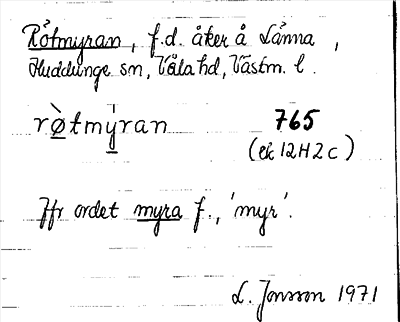 Råtmyran, f.d. åker å Länna,
Huddunge sn, Våla hd, Västm. l.
rø̀tmýran 765
(ek 12H2c)
Jfr ordet myra f., 'myr'.
L. Jonsson 1971